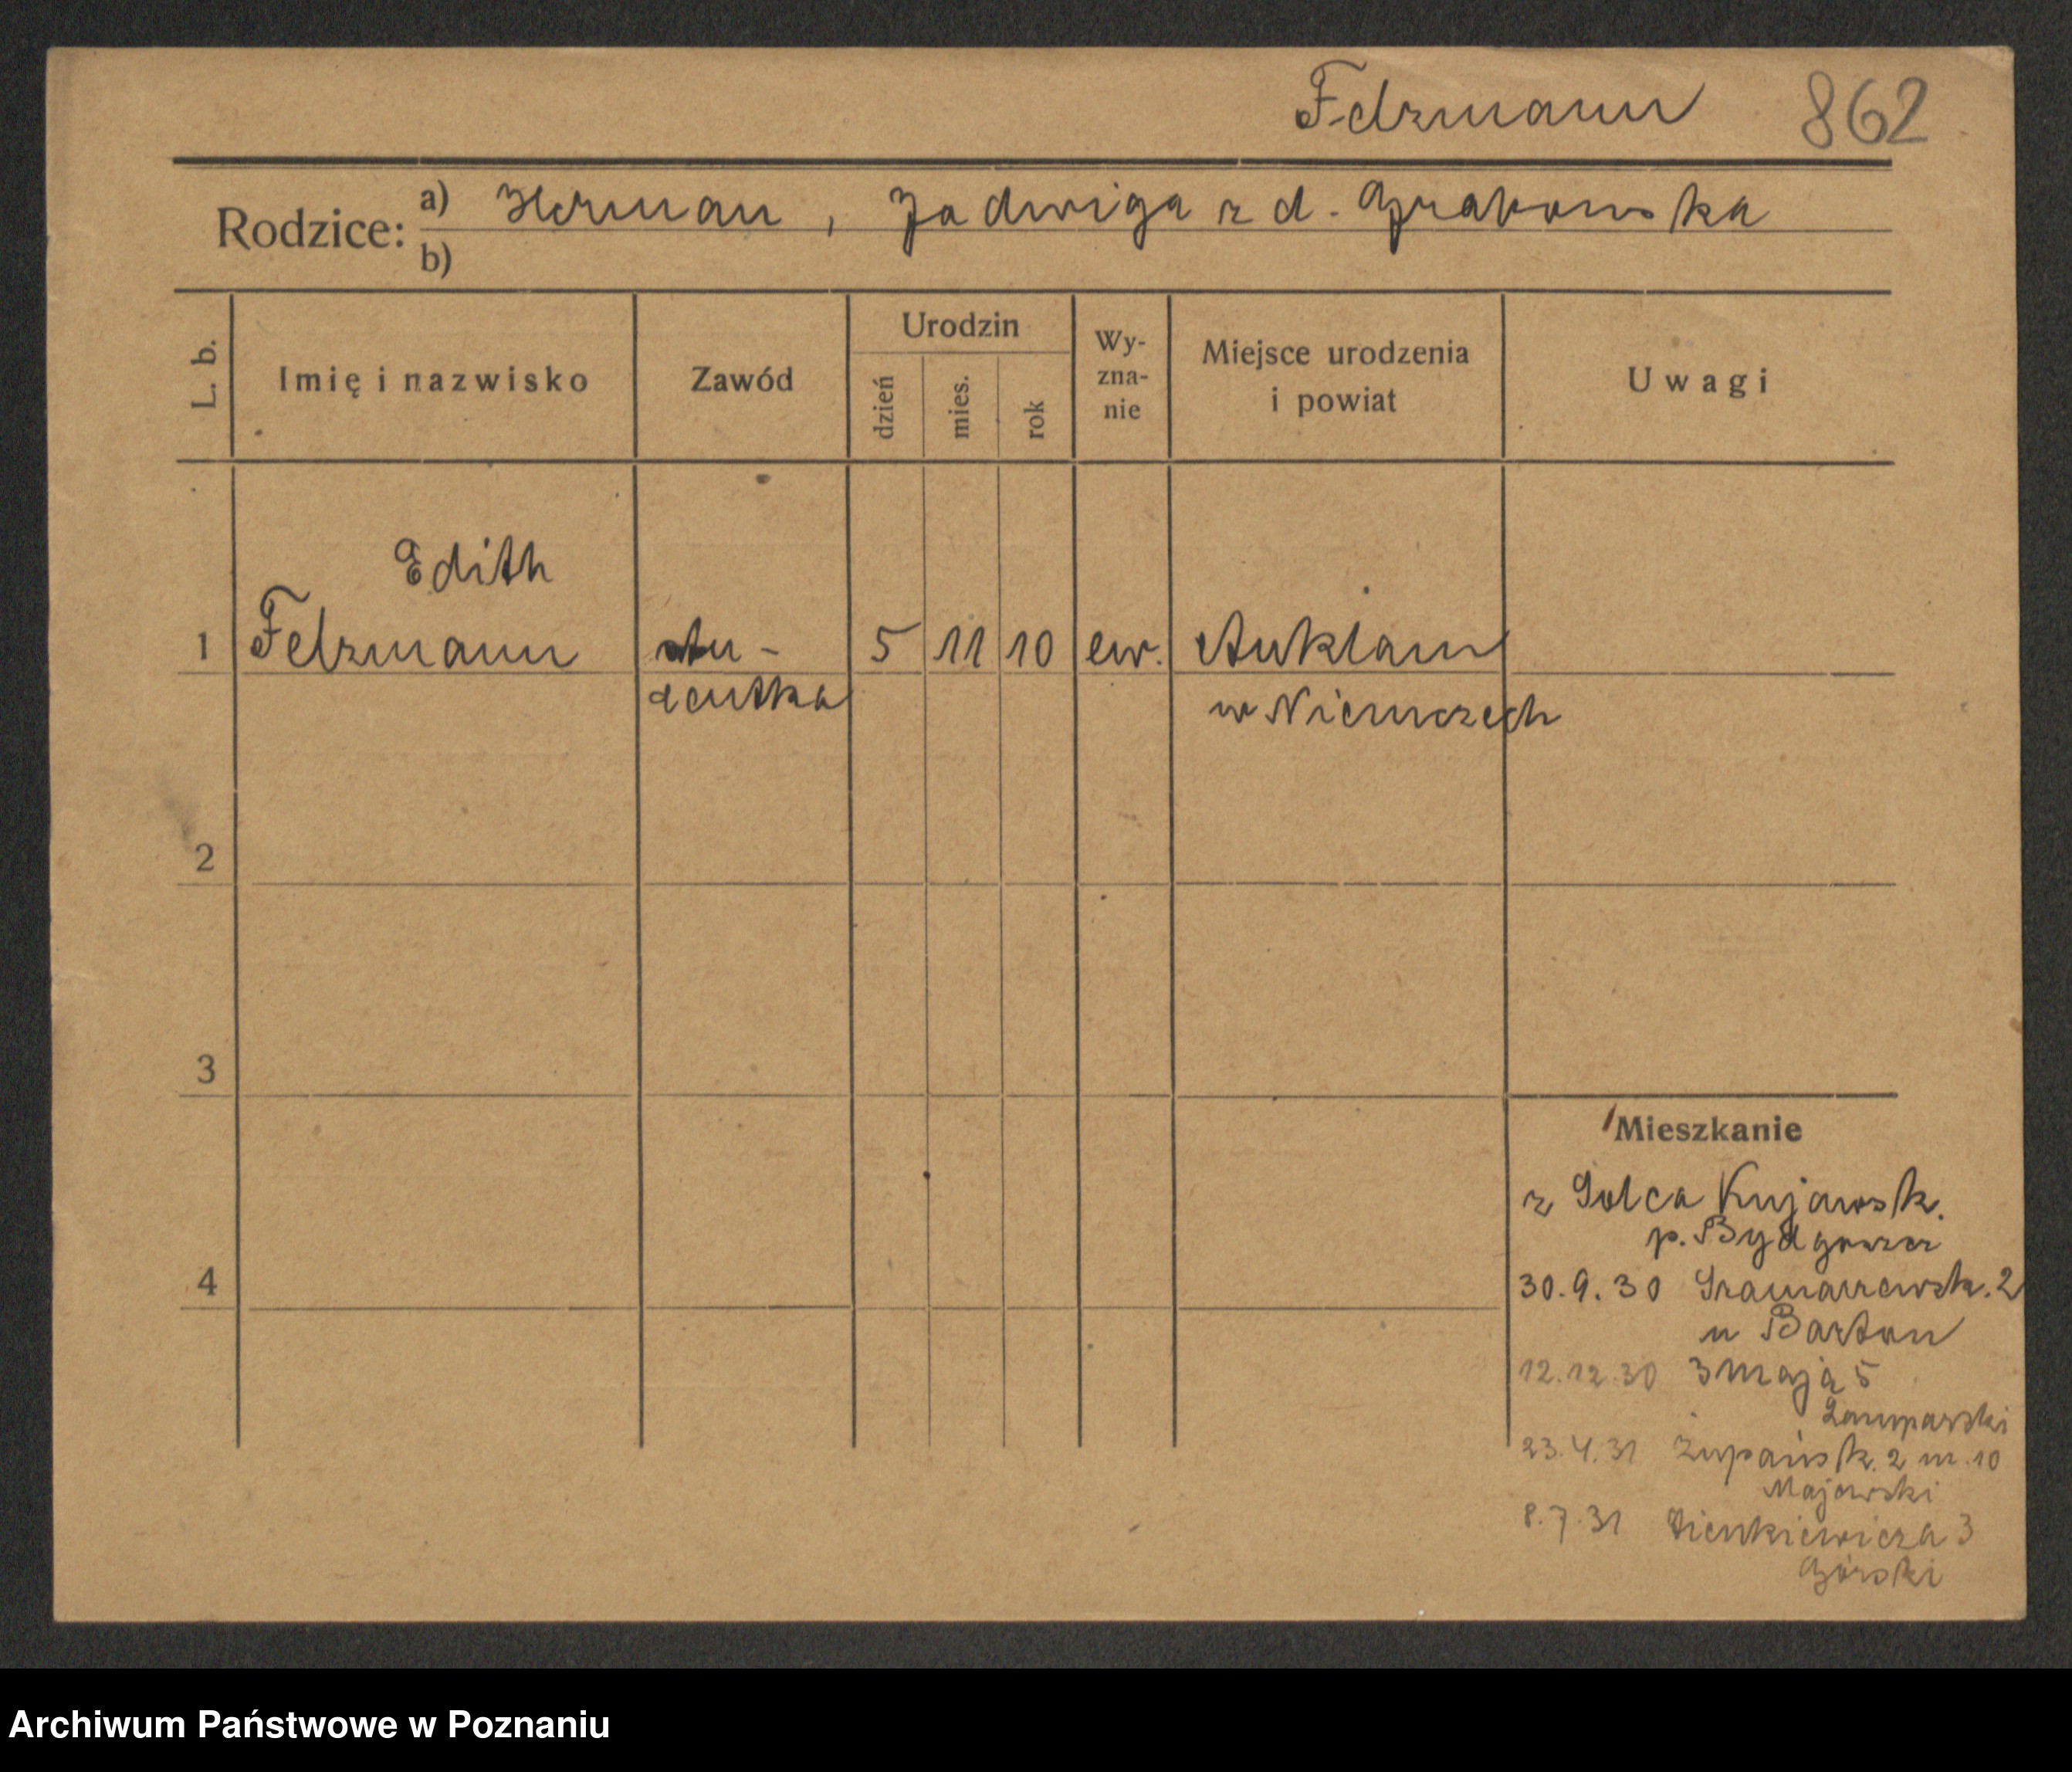 Felzmann 862
Rodzice: a) Herman, Jadwiga z d. Grabowska
b)
L. b. Imię i nazwisko Zawód Urodzin dzień mies. rok Wy-zna-nie Miejsce urodzenia i powiat Uwagi
Edith
1 Felzmann stu- 5 11 10 ew. Anklam
dentka w Niemczech
2
3
Mieszkanie
z Solca Kujawsk.
p. Bydgoszcz
4
30.9.30 2
u Barton
12.12.30 3 Maja 5
Lamparski
23.4.31 Żupańsk. 2 m. 10
Majewski
8.7.31 Sienkiewicza 3
Górski
Archiwum Państwowe w Poznaniu